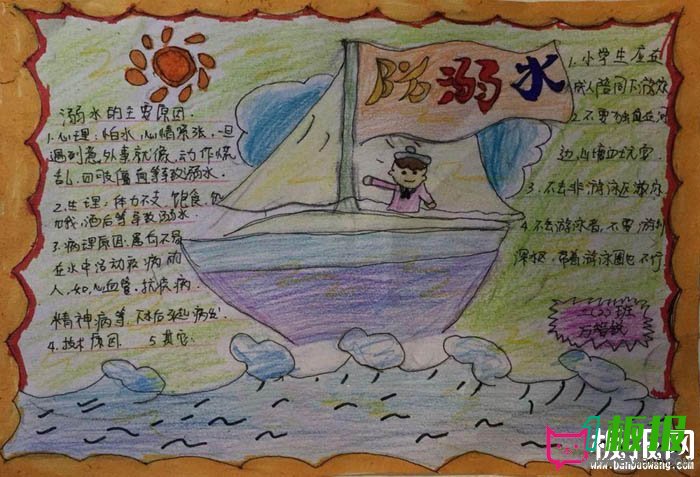 防溺水
溺水的主要原因.
1.心理:怕水,心情紧张,一旦
遇到意外事就慌,动作慌
乱,四肢
等导致溺水.
2.生理:体力不支 饱食,饥
饿,酒后等导致溺水.
3.病理原因.
在水中活动疾病
人,如,心血管,
精神病等.
4.技术原因. 5.其它.
1.小学生应在
成人陪同下游泳
2.不要独自在河
边、山塘边玩耍
3.不去非游泳区游泳
4.不会游泳者,不要游到
深
带着游泳圈也不行
班
板报网
www.banbaowang.com